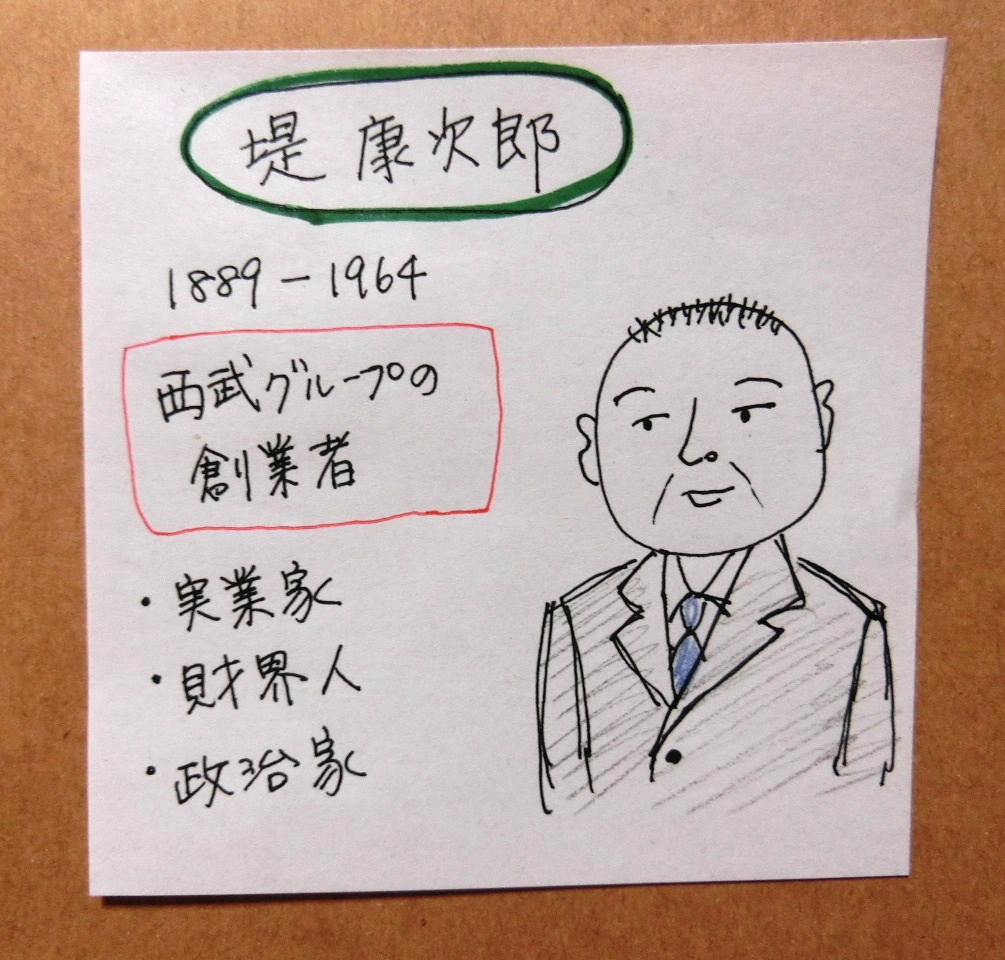 堤 康次郎
1889-1964
西武グループの
創業者
・実業家
・財界人
・政治家